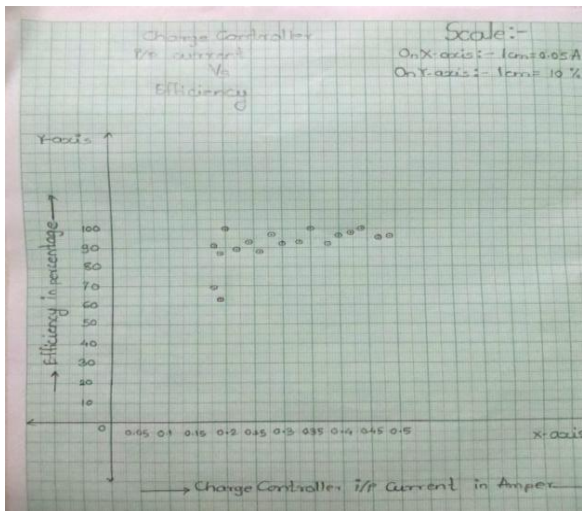 Charge Controller
i/p current
Vs
Efficiency
Scale:-
On X-axis:- 1cm=0.05A
On Y-axis:- 1cm= 10 %
Y-axis
Efficiency in percentage
100
90
80
70
60
50
40
30
20
10
0
0.05 0.1 0.15 0.2 0.25 0.3 0.35 0.4 0.45 0.5
x-axis
Charge Controller i/p Current in Amper